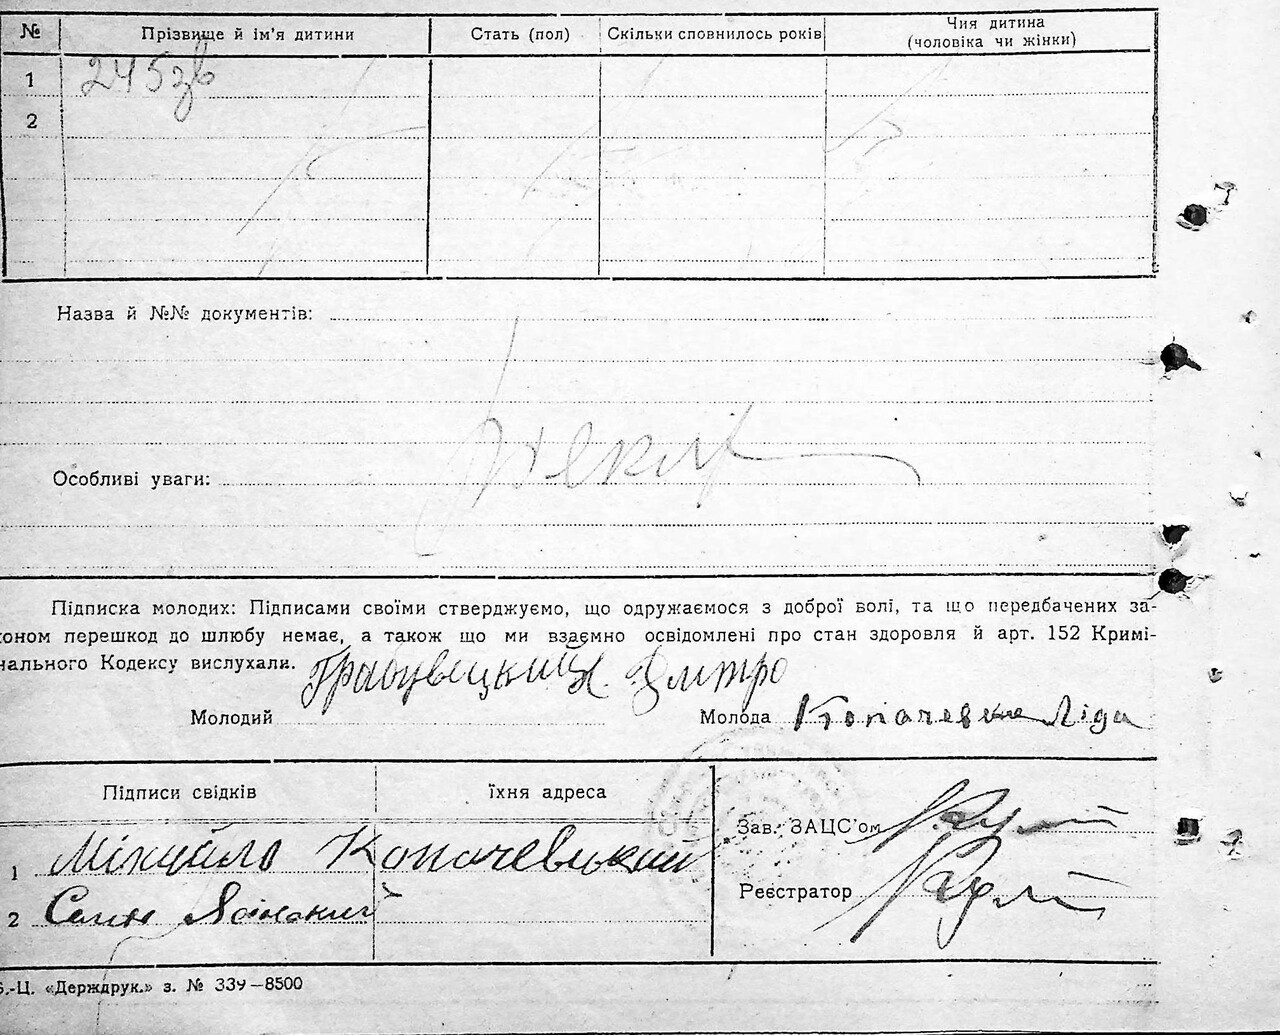 № Прізвище й ім'я дитини Стать (пол) Скільки сповнилось років Чия дитина (чоловіка чи жінки)
1 245зв
2
Назва й №№ документів:
Особливі уваги:
Підписка молодих: Підписами своїми стверджуємо, що одружаємося з доброї волі, та що передбачених за-
коном перешкод до шлюбу немає, а також що ми взаємно освідомлені про стан здоровля й арт. 152 Кримі-
нального Кодексу вислухали.
Молодий Грабовецкий Дмитро Молода Копачевска Ліда
Підписи свідків їхня адреса
Зав. ЗАЦС'ом
1 Міхайло Копачевський
Реєстратор
2
«Держдрук.» з. № 339—8500